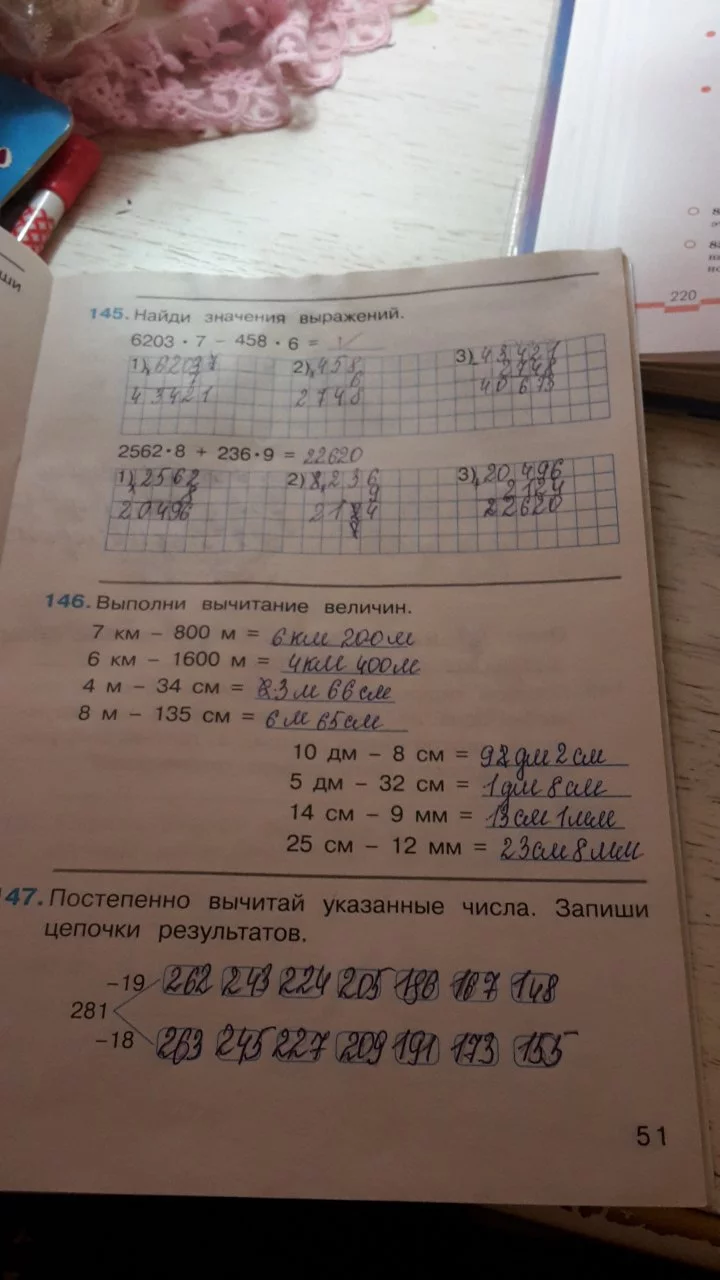 220
145. Найди значения выражений.
6203 · 7 − 458 · 6 =
1) 6203 2) 458 3) 43421
7 6 2748
43421 2748 40673
2562·8 + 236·9 = 22620
1) 2562 2) 236 3) 20496
8 9 2124
20496 2124 22620
146. Выполни вычитание величин.
7 км − 800 м = 6 км 200 м
6 км − 1600 м = 4 км 400 м
4 м − 34 см = 3 м 66 см
8 м − 135 см = 6 м 65 см
10 дм − 8 см = 9 дм 2 см
5 дм − 32 см = 1 дм 8 см
14 см − 9 мм = 13 см 1 мм
25 см − 12 мм = 23 см 8 мм
147. Постепенно вычитай указанные числа. Запиши
цепочки результатов.
−19 262 243 224 205 186 167 148
281
−18 263 245 227 209 191 173 155
51